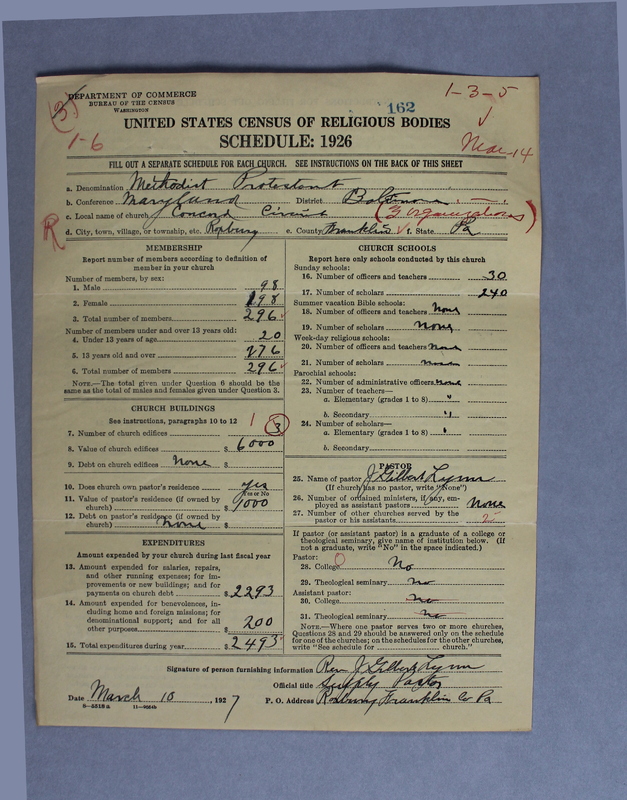 DEPARTMENT OF COMMERCE
BUREAU OF THE CENSUS
WASHINGTON
(3)
1-6
162
1-3-5
Mar 14
UNITED STATES CENSUS OF RELIGIOUS BODIES
SCHEDULE: 1926
FILL OUT A SEPARATE SCHEDULE FOR EACH CHURCH. SEE INSTRUCTIONS ON THE BACK OF THIS SHEET
a. Denomination Methodist Protestant
b. Conference Maryland District Baltimore
c. Local name of church Concord Circuit (3 organizations)
R
d. City, town, village, or township, etc. Roxbury e. County Franklin f. State Pa
MEMBERSHIP
Report number of members according to definition of
member in your church
Number of members, by sex:
1. Male 98
2. Female 198
3. Total number of members 296
Number of members under and over 13 years old:
4. Under 13 years of age 20
5. 13 years old and over 276
6. Total number of members 296
NOTE.—The total given under Question 6 should be the
same as the total of males and females given under Question 3.
CHURCH BUILDINGS
See instructions, paragraphs 10 to 12
7. Number of church edifices 1 (3)
8. Value of church edifices $ 6000
9. Debt on church edifices None $
10. Does church own pastor's residence yes
Yes or No
11. Value of pastor's residence (if owned by
church) $ 1000
12. Debt on pastor's residence (if owned by
church) None $
EXPENDITURES
Amount expended by your church during last fiscal year
13. Amount expended for salaries, repairs,
and other running expenses; for im-
provements or new buildings; and for
payments on church debt $ 2293
14. Amount expended for benevolences, in-
cluding home and foreign missions; for
denominational support; and for all
other purposes $ 200
15. Total expenditures during year $ 2493
CHURCH SCHOOLS
Report here only schools conducted by this church
Sunday schools:
16. Number of officers and teachers 30
17. Number of scholars 240
Summer vacation Bible schools:
18. Number of officers and teachers None
19. Number of scholars None
Week-day religious schools:
20. Number of officers and teachers None
21. Number of scholars None
Parochial schools:
22. Number of administrative officers None
23. Number of teachers—
a. Elementary (grades 1 to 8) "
b. Secondary "
24. Number of scholars—
a. Elementary (grades 1 to 8) "
b. Secondary
PASTOR
25. Name of pastor J Gilbert Lynn
(If church has no pastor, write "None")
26. Number of ordained ministers, if any, em-
ployed as assistant pastors None
27. Number of other churches served by the
pastor or his assistants 2
If pastor (or assistant pastor) is a graduate of college or
theological seminary, give name of institution below. (If
not a graduate, write "No" in the space indicated.)
Pastor:
28. College No
29. Theological seminary No
Assistant pastor:
30. College No
31. Theological seminary No
NOTE.—Where one pastor serves two or more churches,
Questions 28 and 29 should be answered only on the schedule
for one of the churches; on the schedules for the other churches,
write "See schedule for church."
Signature of person furnishing information Rev. J Gilbert Lynn
Official title Supply Pastor
Date March 10, 1927
P. O. Address Roxbury Franklin Co Pa
8-5318a 11-9664b